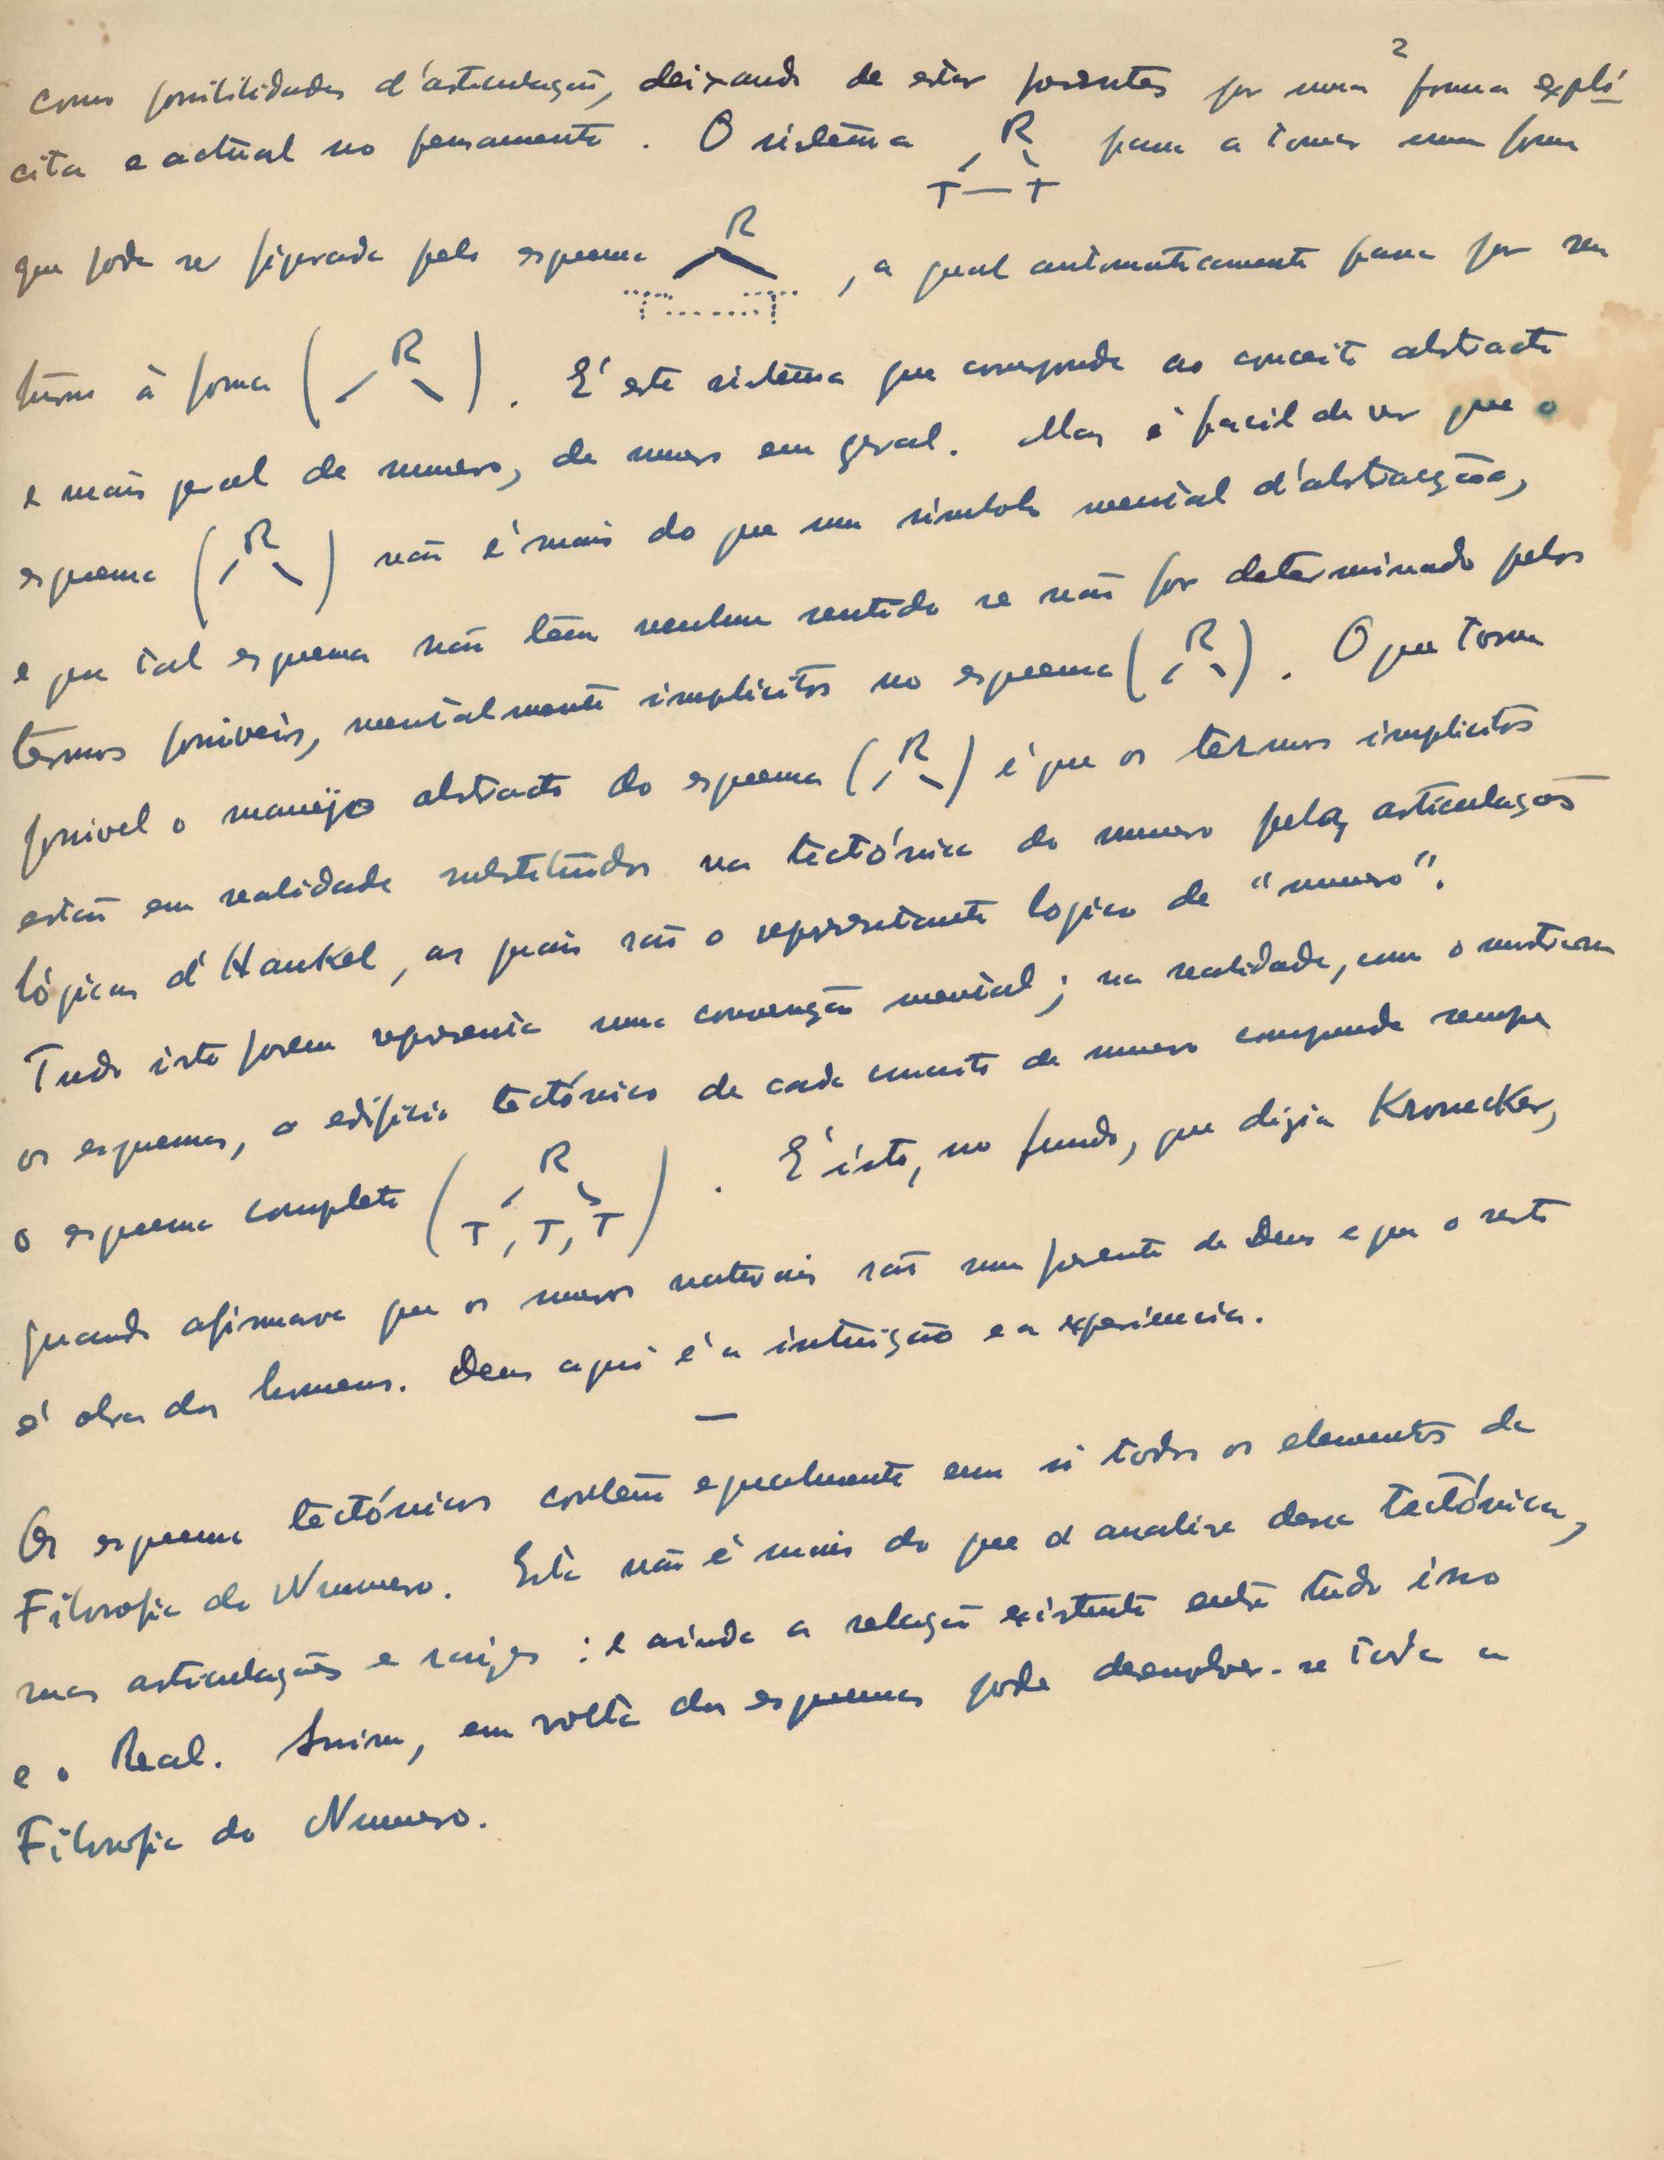 2
como possibilidades d'articulação, deixando de estar presentes por uma forma explí
cita e actual no pensamento. O sistema R T — T passa a tomar uma forma
que pode ser figurada pelo esquema R T T, a qual automaticamente passa por seu
turno à forma ( R ). É este sistema que corresponde ao conceito abstracto
e mais geral de numero, de numero em geral. Mas é facil de ver que o
esquema ( R ) não é mais do que um simbolo mental d'abstracção,
e que tal esquema não tem nenhum sentido se não for determinado pelos
termos possiveis, mentalmente implicitos no esquema ( R ). O que torna
possivel o manejo abstracto do esquema ( R ) é que os termos implicitos
estão em realidade substituidos na tectónica do numero pelas articulações
lógicas d'Hankel, as quais são o representante logico de "numero".
Tudo isto porem representa uma convenção mental; na realidade, como o mostram
os esquemas, o edificio tectónico de cada conceito de numero compreende sempre
o esquema completo ( R T, T, T ). É isto, no fundo, que dizia Kronecker,
quando afirmava que os numeros naturais são um presente de Deus e que o resto
é obra dos homens. Deus aqui é a intuição e a experiencia.
—
Os esquema tectónicos contêm egualmente em si todos os elementos da
Filosofia do Numero. Esta não é mais do que a analise dessa tectónica,
suas articulações e raizes: e ainda a relação existente entre tudo isso
e o Real. Assim, em volta dos esquemas pode desenvolver-se toda a
Filosofia do Numero.